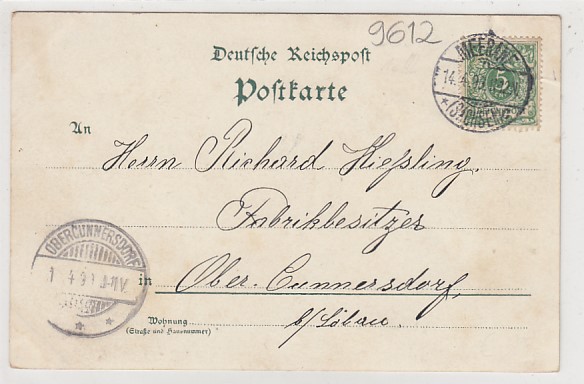 9612
Deutsche Reichspost
Postkarte
5
(SACHSEN)
An
Herrn Richard Kießling.
Fabrikbesitzer
in Ober-Cunnersdorf,
b/Löbau.
Wohnung
(Straße und Hausnummer)
OBERCUNNERSDORF